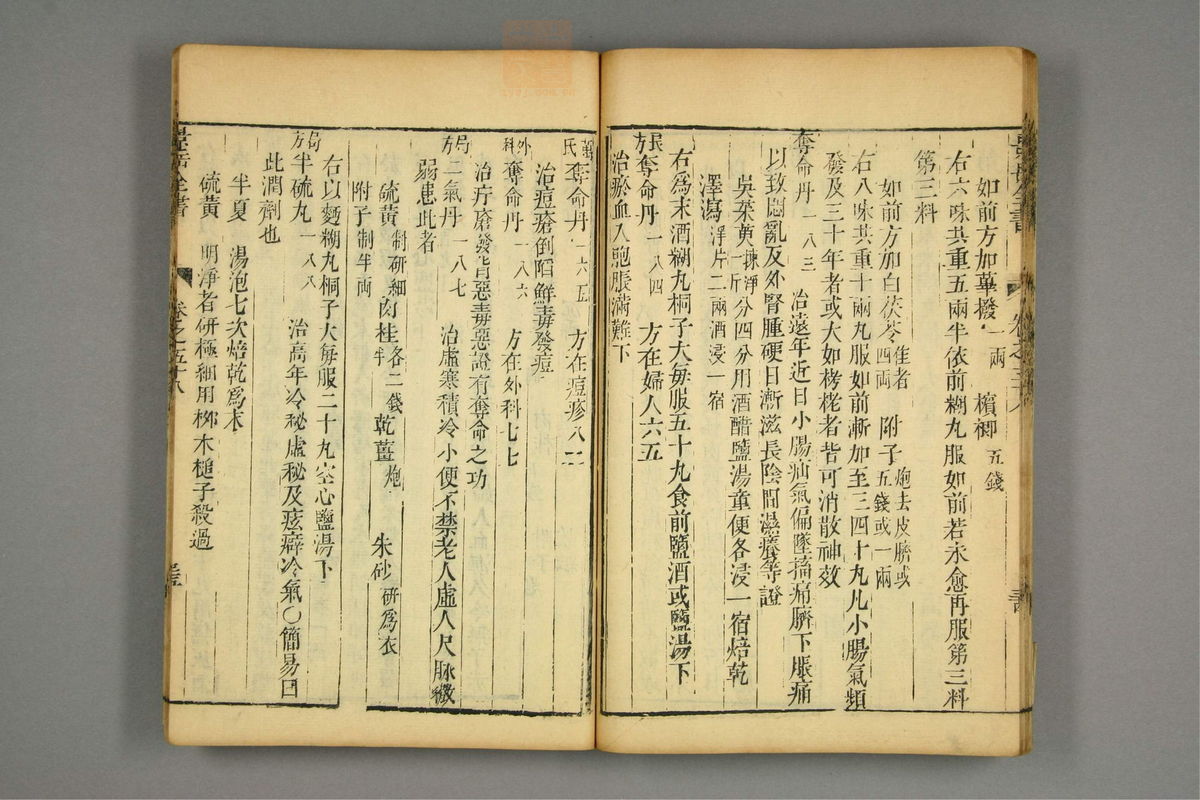 如前方加蓽撥一兩 檳榔五錢
右六味共重五兩半依前糊丸服如前若未愈再服第三料
第三料
如前方加白茯苓佳者四兩 附子炮去皮臍或五錢或一兩
右八味共重十兩丸服如前漸加至三四十丸凡小腸氣頻
發及三十年者或大如栲栳者皆可消散神效
奪命丹一八三 治遠年近日小腸疝氣偏墜搐痛臍下脹痛
以致悶亂及外腎腫硬日漸滋長陰間濕癢等證
吳茱萸揀淨一斤分四分用酒醋鹽湯童便各浸一宿焙乾
澤瀉淨片二兩酒浸一宿
右爲末酒糊丸桐子大每服五十丸食前鹽酒或鹽湯下
良方奪命丹一八四 方在婦人六五
治瘀血入胞脹滿難下
氏奪命丹一八五 方在痘疹八二
治痘瘡倒陷鮮毒發痘
外科奪命丹一八六 方在外科七七
治疔瘡發背惡毒惡證有奪命之功
局方二氣丹一八七 治虛寒積冷小便不禁老人虛人尺脉微
弱患此者
硫黄制研細 肉桂各二錢半 乾薑炮 朱砂研爲衣
附子制半兩
右以麵糊丸桐子大每服二十丸空心鹽湯下
局方半硫丸一八八 治高年冷秘虛秘及痃癖冷氣○簡易曰
此潤劑也
半夏湯泡七次焙乾爲末
硫黄明淨者研極細用桞木槌子殺過
全書 卷之五十八